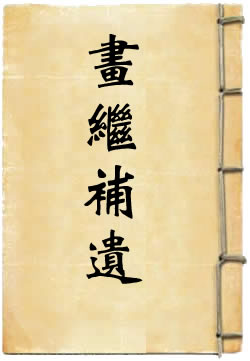 畫繼補遺